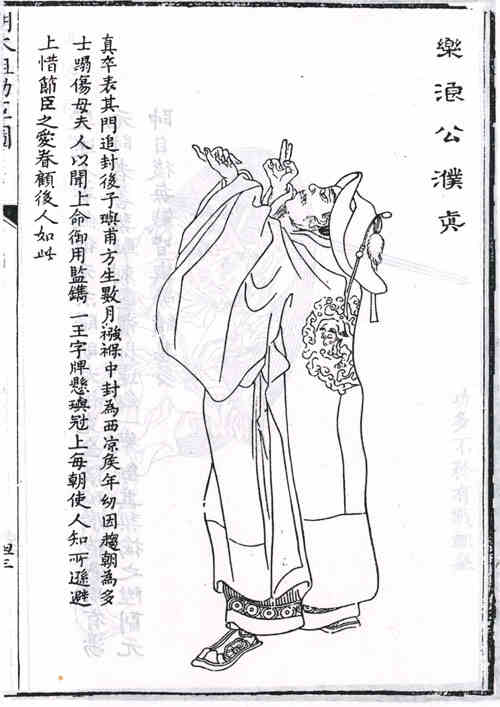 樂浪公濮真
真卒表其門追封後子璵甫方生數月襁褓中封為西凉矦年幼因趨朝為多
士蹋傷母夫人以聞上命御用監鐫一王字牌懸璵冠上每朝使人知所遜避
上惜節臣之愛眷顧後人如此